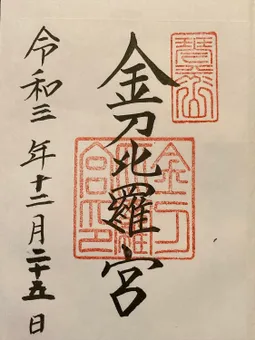 金刀比羅宮
金刀
比羅
宮印
令和三年十二月二十五日